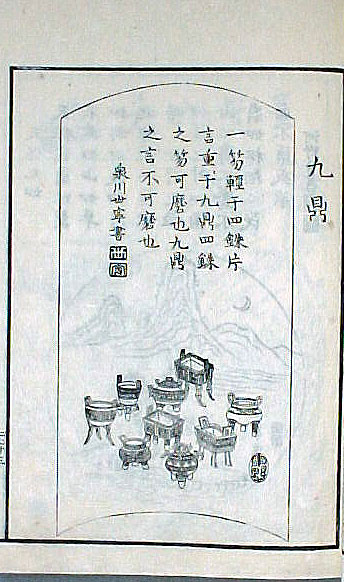 九鼎
一芴輕于四銖片
言重于九鼎四銖
之芴可磨也九鼎
之言不可磨也
泉川世寧書